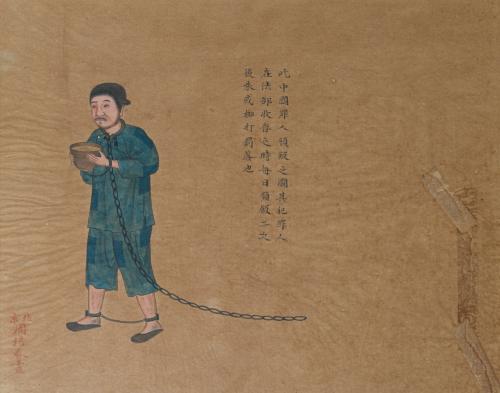 此中國罪人領飯之圖其犯罪人
在法部收養之時每日領飯二次
後來或枷打罰落也
北京周培春画